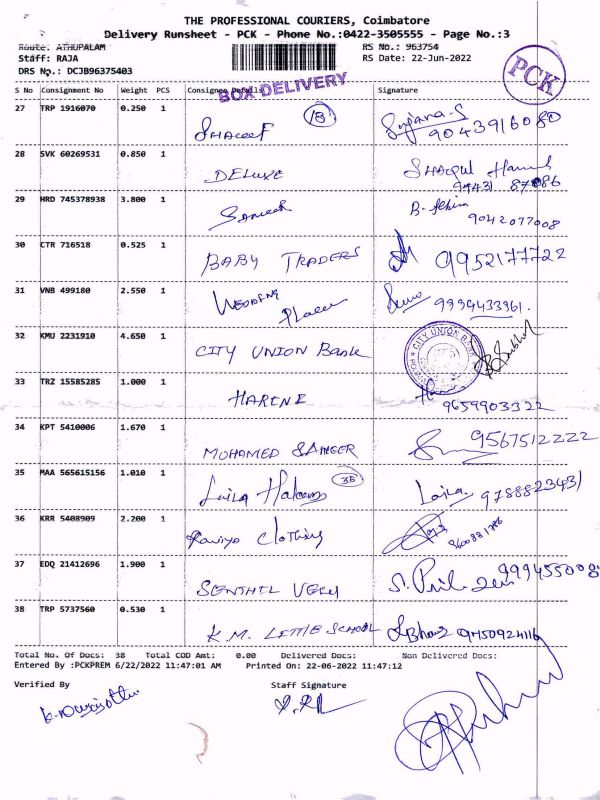 THE PROFESSIONAL COURIERS, Coimbatore
Delivery Runsheet - PCK - Phone No.:0422-3505555 - Page No.:3
Route: ATHUPALAM RS No.: 963754
Staff: RAJA RS Date: 22-Jun-2022
DRS No.: DCJB96375403
BOX DELIVERY
PCK
S No Consignment No Weight PCS Consignee Details Signature
27 TRP 1916070 0.250 1 SHAREEF 18 9043916080
28 SVK 60269531 0.850 1 DELUXE 99431 87086
29 HRD 745378938 3.800 1 9042077008
30 CTR 716518 0.525 1 BABY TRADERS 9952177722
31 VNB 499180 2.550 1 WEDDING 9994433961.
32 KMU 2231910 4.650 1 CITY UNION Bank CITY UNION BANK
33 TRZ 15585285 1.000 1 HARENE 9659903322
34 KPT 5410006 1.670 1 MOHOMED 9567512222
35 MAA 565615156 1.010 1 Laila 35 Laila 9788823431
36 KRR 5408909 2.200 1 Clothing 9600331786
37 EDQ 21412696 1.900 1 SENTHIL VELU 999455008
38 TRP 5737560 0.530 1 K.M. LITTLE SCHOOL 9750924116
Total No. Of Docs: 38 Total COD Amt: 0.00 Delivered Docs: Non Delivered Docs:
Entered By :PCKPREM 6/22/2022 11:47:01 AM Printed On: 22-06-2022 11:47:12
Verified By Staff Signature